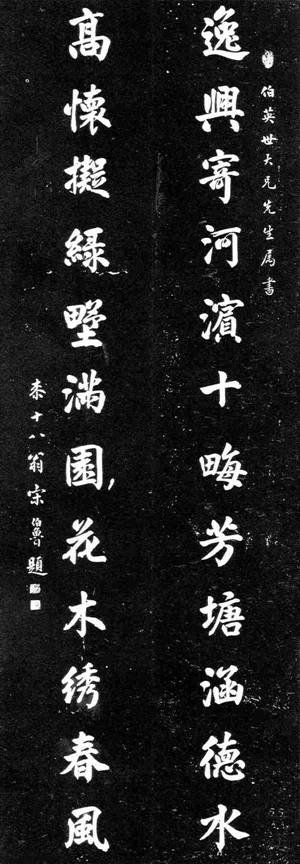 伯英世大兄先生属書
逸興寄河濵十畮芳塘涵德水
高懷擬緑埜满園花木绣春風
柒十八翁宗伯魯題